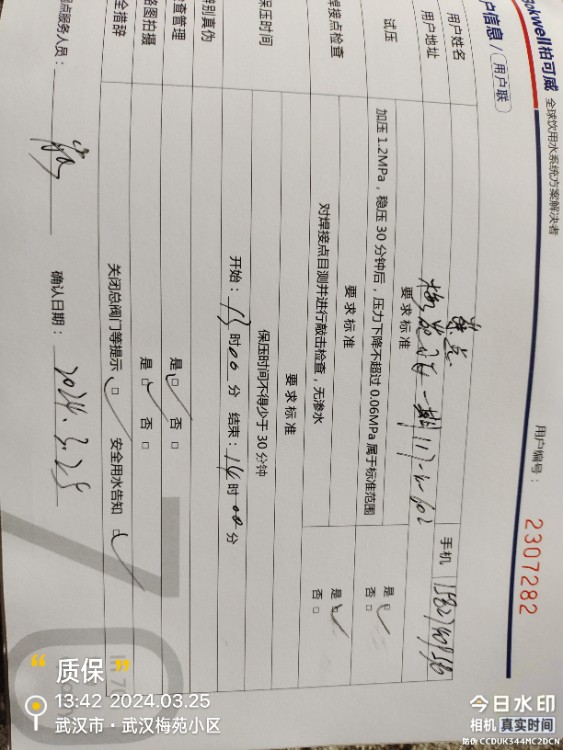 Bonwell柏可威 全球饮用水系统方案解决者
户信息/(用户联)
用户编号：2307282
用户姓名
手机
用户地址
试压
要求标准
加压1.2MPa，稳压30分钟后，压力下降不超过0.06MPa属于标准范围
是☑ 否□
焊接点检查
要求标准
对焊接点目测并进行敲击检查，无渗水
是☑ 否□
保压时间
要求标准
保压时间不得少于30分钟
开始：13时00分 结束：14时00分
辨别真伪
是☑ 否□
查管理
是☑ 否□
路图拍摄
全措辞
关闭总阀门等提示☑ 安全用水告知☑
网点服务人员：
确认日期：2024.3.25
“质保”
13:42 2024.03.25
武汉市·武汉梅苑小区
今日水印
相机 真实时间
防伪 CCDUK344MC2DCN